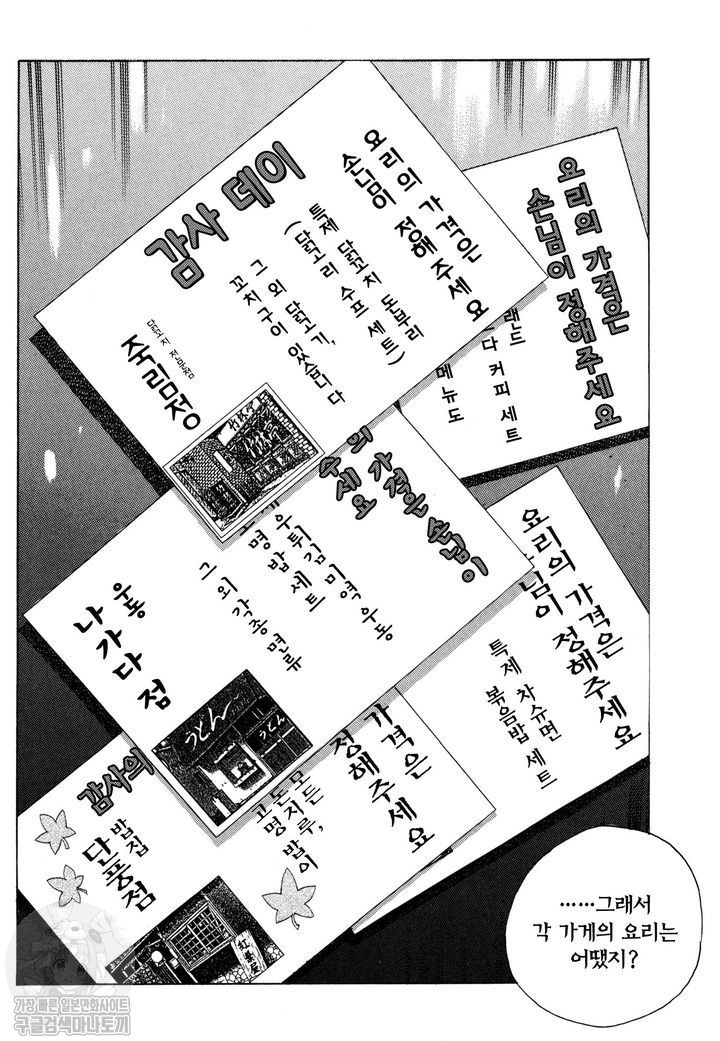 요리의 가격은
손님이 정해주세요
랜드
(다 커피 세트
메뉴도
감사 데이
요리의 가격은
손님이 정해주세요
특제 닭꼬치 도부리
(닭고리 수프 세트)
그 외 닭고기,
꼬치구이 있습니다
닭꼬치 전문점
죽림정
가격은 손님이
세요
우튀김 미역 우동
명밥 세트
그 외 각종 면류
우동
나가다점
うどん
うどん
요리의 가격은
님이 정해주세요
특제 차슈면
볶음밥 세트
가격은
정해주세요
감사의
모든
돈지루,
고명 밥이
밥집
단풍점
紅葉屋
……그래서
각 가게의 요리는
어땠지?
가장 빠른 일본만화사이트
구글검색마나토끼